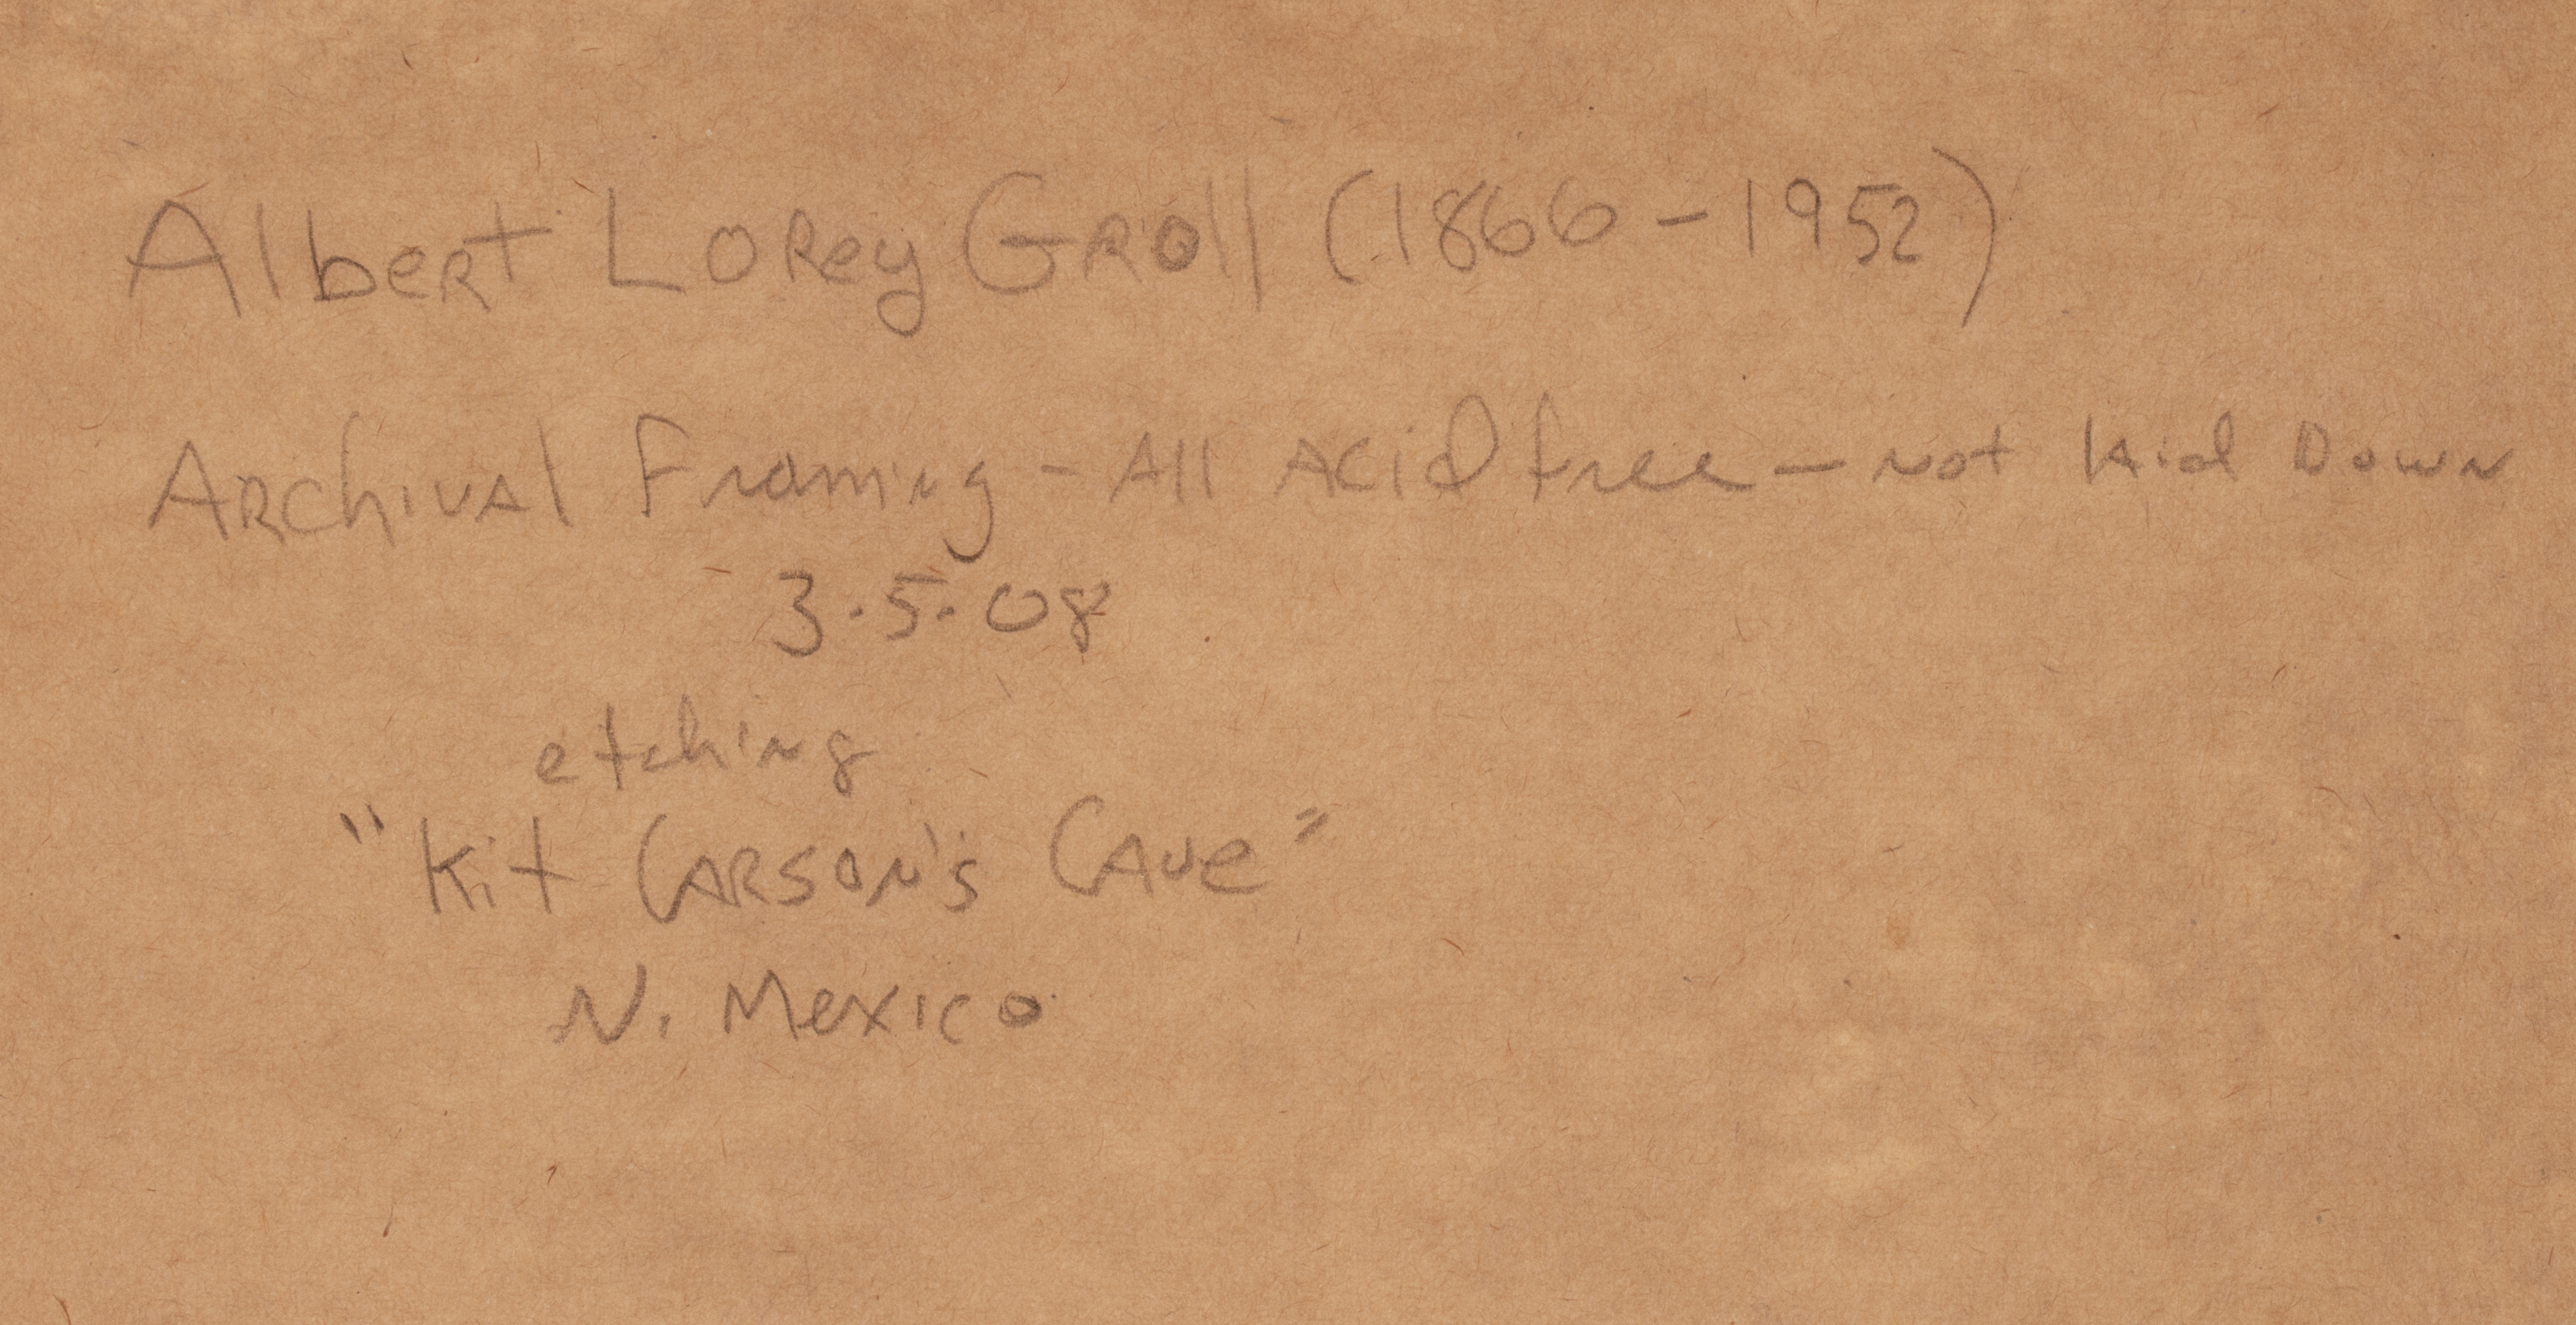 Albert Lorey Groll (1866-1952)
Archival Framing - All Acid free - not laid Down
3.5.08
etching
"Kit Carson's Cave"
N. Mexico